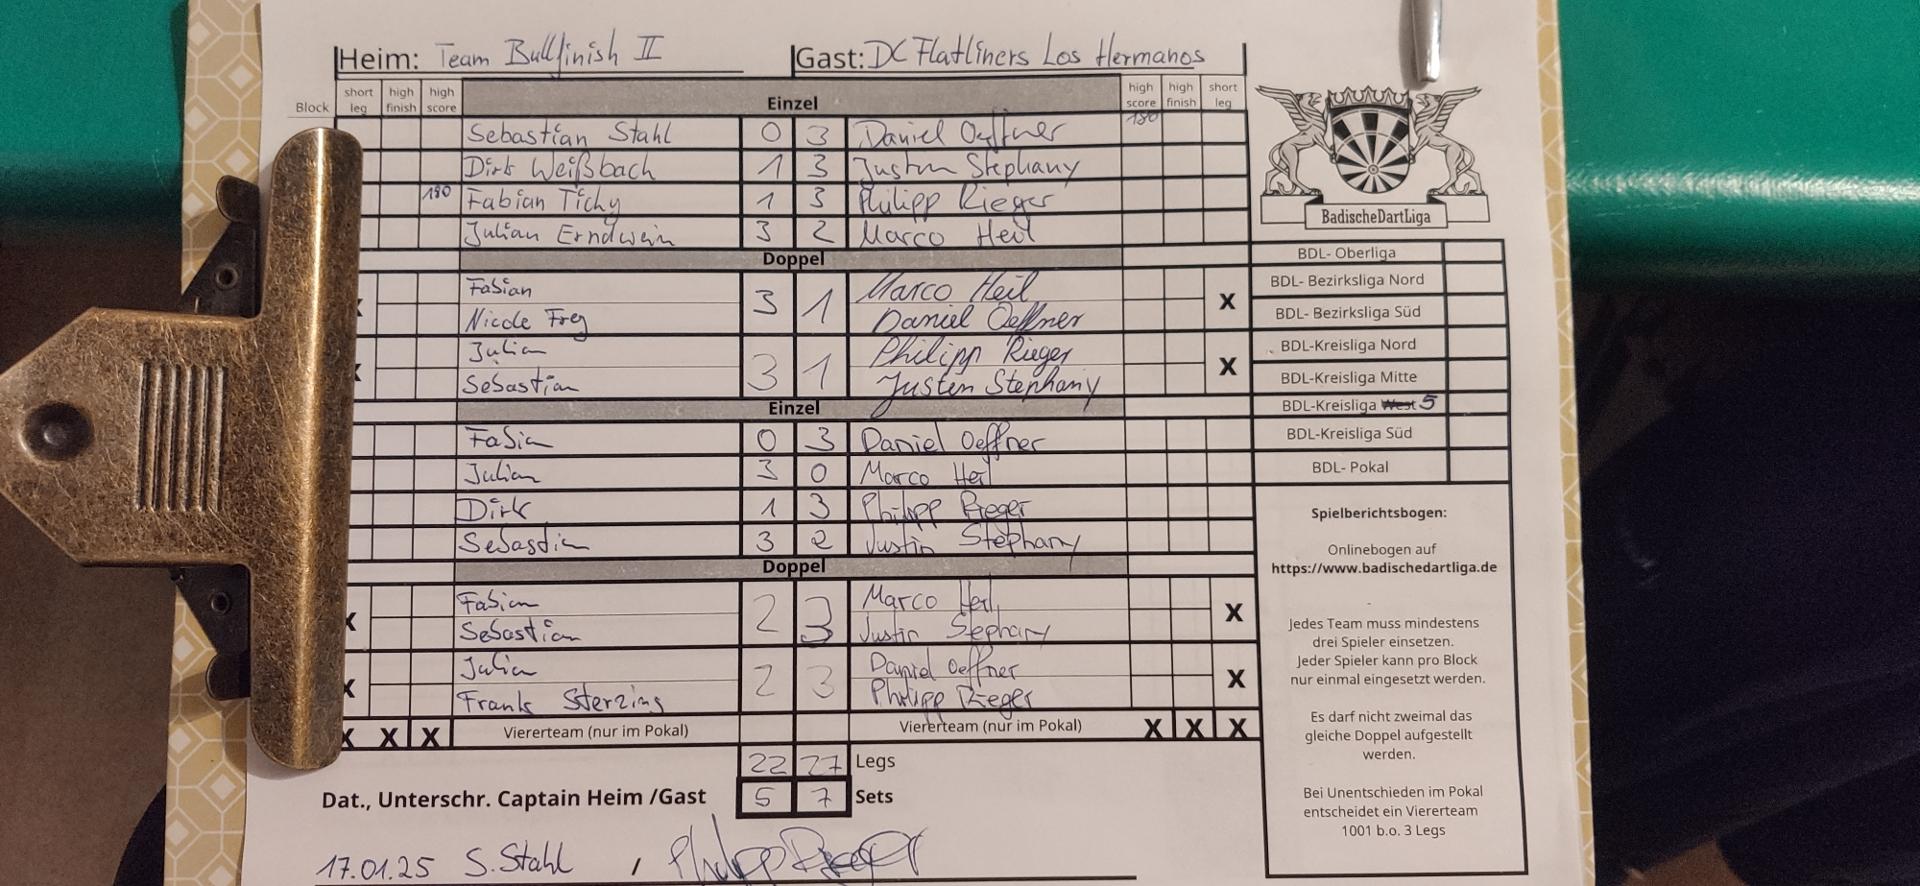 Heim: Team Bullfinish II Gast: DC Flatliners Los Hermanos
Block short leg high finish high score Einzel high score high finish short leg
Sebastian Stahl 0 3 Daniel Oeffner 180
Dirk Weißbach 1 3 Justin Stephany
180 Fabian Tichy 1 3 Philipp Rieger
Julian Erndwein 3 2 Marco Heil
Doppel
Fabian 3 1 Marco Heil X
Nicole Frey Daniel Oeffner
Julian 3 1 Philipp Rieger X
Sebastian Justin Stephany
Einzel
Fabian 0 3 Daniel Oeffner
Julian 3 0 Marco Heil
Dirk 1 3 Philipp Rieger
Sebastian 3 2 Justin Stephany
Doppel
X Fabian 2 3 Marco Heil X
Sebastian Justin Stephany
X Julian 2 3 Daniel Oeffner X
Frank Sterzing Philipp Rieger
X X X Viererteam (nur im Pokal) Viererteam (nur im Pokal) X X X
22 27 Legs
Dat., Unterschr. Captain Heim /Gast 5 7 Sets
17.01.25 S. Stahl / Philipp Rieger
BadischeDartLiga
BDL- Oberliga
BDL- Bezirksliga Nord
BDL- Bezirksliga Süd
BDL-Kreisliga Nord
BDL-Kreisliga Mitte
BDL-Kreisliga West 5
BDL-Kreisliga Süd
BDL- Pokal
Spielberichtsbogen:
Onlinebogen auf
https://www.badischedartliga.de
Jedes Team muss mindestens
drei Spieler einsetzen.
Jeder Spieler kann pro Block
nur einmal eingesetzt werden.
Es darf nicht zweimal das
gleiche Doppel aufgestellt
werden.
Bei Unentschieden im Pokal
entscheidet ein Viererteam
1001 b.o. 3 Legs